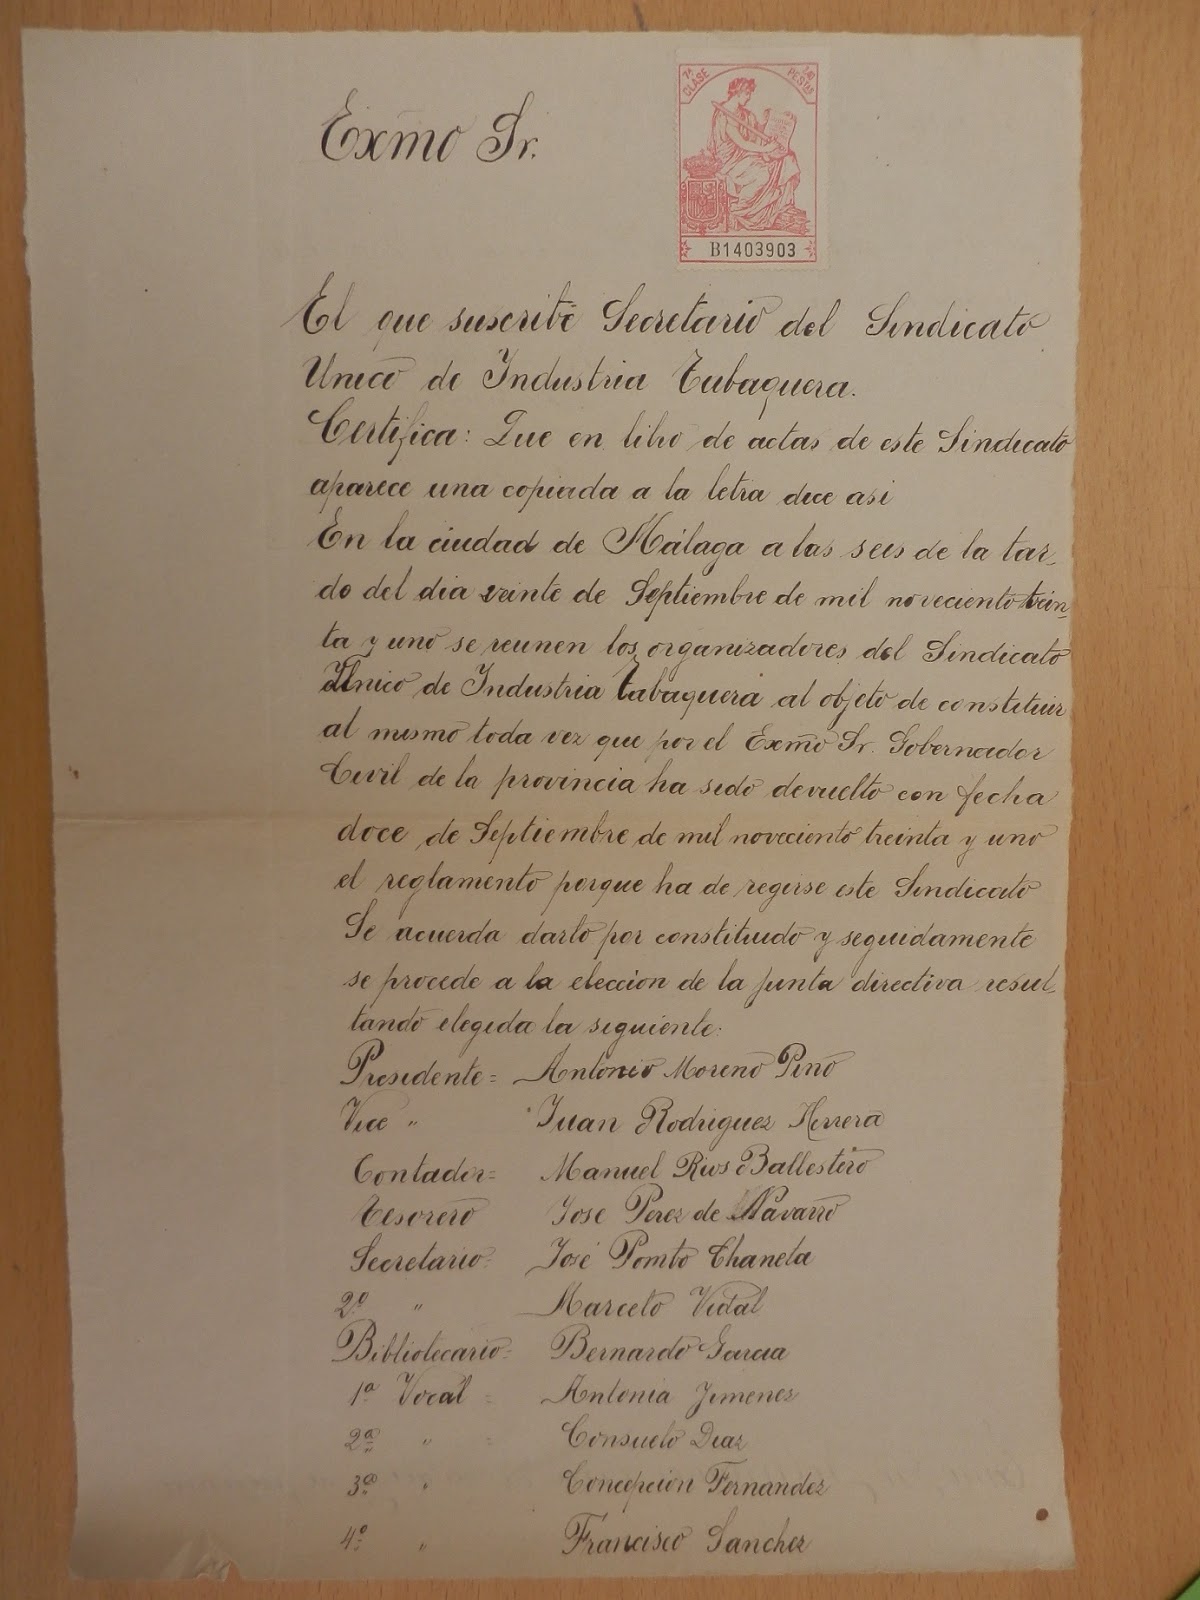 7ª CLASE
1,20 PESETAS
B1403903
Exmo Sr.
El que suscribe Secretario del Sindicato
Unico de Industria Tabaquera.
Certifica: Que en libro de actas de este Sindicato
aparece una copiada a la letra dice asi
En la ciudad de Málaga a las seis de la tar-
do del dia veinte de Septiembre de mil noveciento trein-
ta y uno se reunen los organizadores del Sindicato
Unico de Industria tabaquera al objeto de constituir
al mismo toda vez que por el Exmo Sr. Gobernador
Civil de la provincia ha sido devuelto con fecha
doce de Septiembre de mil noveciento treinta y uno
el reglamento porque ha de regirse este Sindicato
Se acuerda darlo por constituido y seguidamente
se procede a la eleccion de la junta directiva resul-
tando elegida la siguiente:
Presidente = Antonio Moreno Pino
Vice " Juan Rodriguez Herrera
Contador = Manuel Rios Ballestero
Tesorero Jose Perez de Navarro
Secretario = José Pombo Chanela
2º " Marcelo Vidal
Bibliotecario = Bernardo Garcia
1ª Vocal = Antonia Jimenez
2ª " = Consuelo Diaz
3ª " Concepcion Fernandez
4º " Francisco Sanchez